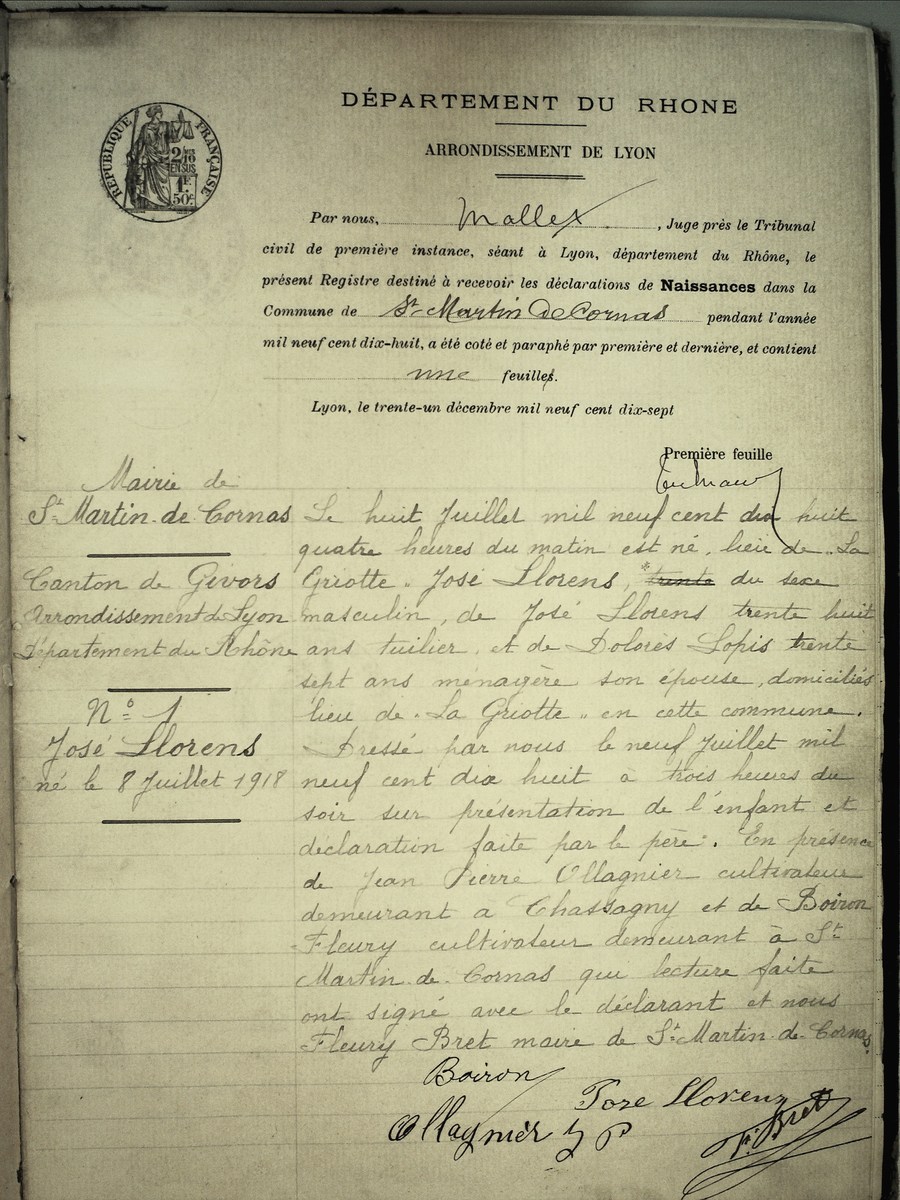 RÉPUBLIQUE FRANÇAISE
2/10
EN SUS
1F
50c
DÉPARTEMENT DU RHONE
ARRONDISSEMENT DE LYON
Par nous, , Juge près le Tribunal
civil de première instance, séant à Lyon, département du Rhône, le
présent Registre destiné à recevoir les déclarations de Naissances dans la
Commune de St Martin De Cornas pendant l'année
mil neuf cent dix-huit, a été coté et paraphé par première et dernière, et contient
une feuilles.
Lyon, le trente-un décembre mil neuf cent dix-sept
Première feuille
Mairie de
St Martin de Cornas
Canton de Givors
Arrondissement de Lyon
Département du Rhône
No 1
José Llorens
né le 8 Juillet 1918
Le huit Juillet mil neuf cent dix huit
quatre heures du matin est né, lieu de "La
Griotte" José Llorens, trente du sexe
masculin, de José Llorens trente huit
ans tuilier, et de Dolorès Lopis trente
sept ans ménagère son épouse, domiciliés
lieu de "La Griotte" en cette commune.
Dressé par nous le neuf Juillet mil
neuf cent dix huit à trois heures du
soir sur présentation de l'enfant et
déclaration faite par le père. En présence
de Jean Pierre Ollagnier cultivateur
demeurant a Chassagny et de Boiron
Fleury cultivateur demeurant à St
Martin de Cornas qui lecture faite
ont signé avec le déclarant et nous
Fleury Bret maire de St Martin de Cornas.
Boiron
Jose Llorenz
Ollagnier J P
F. Bret